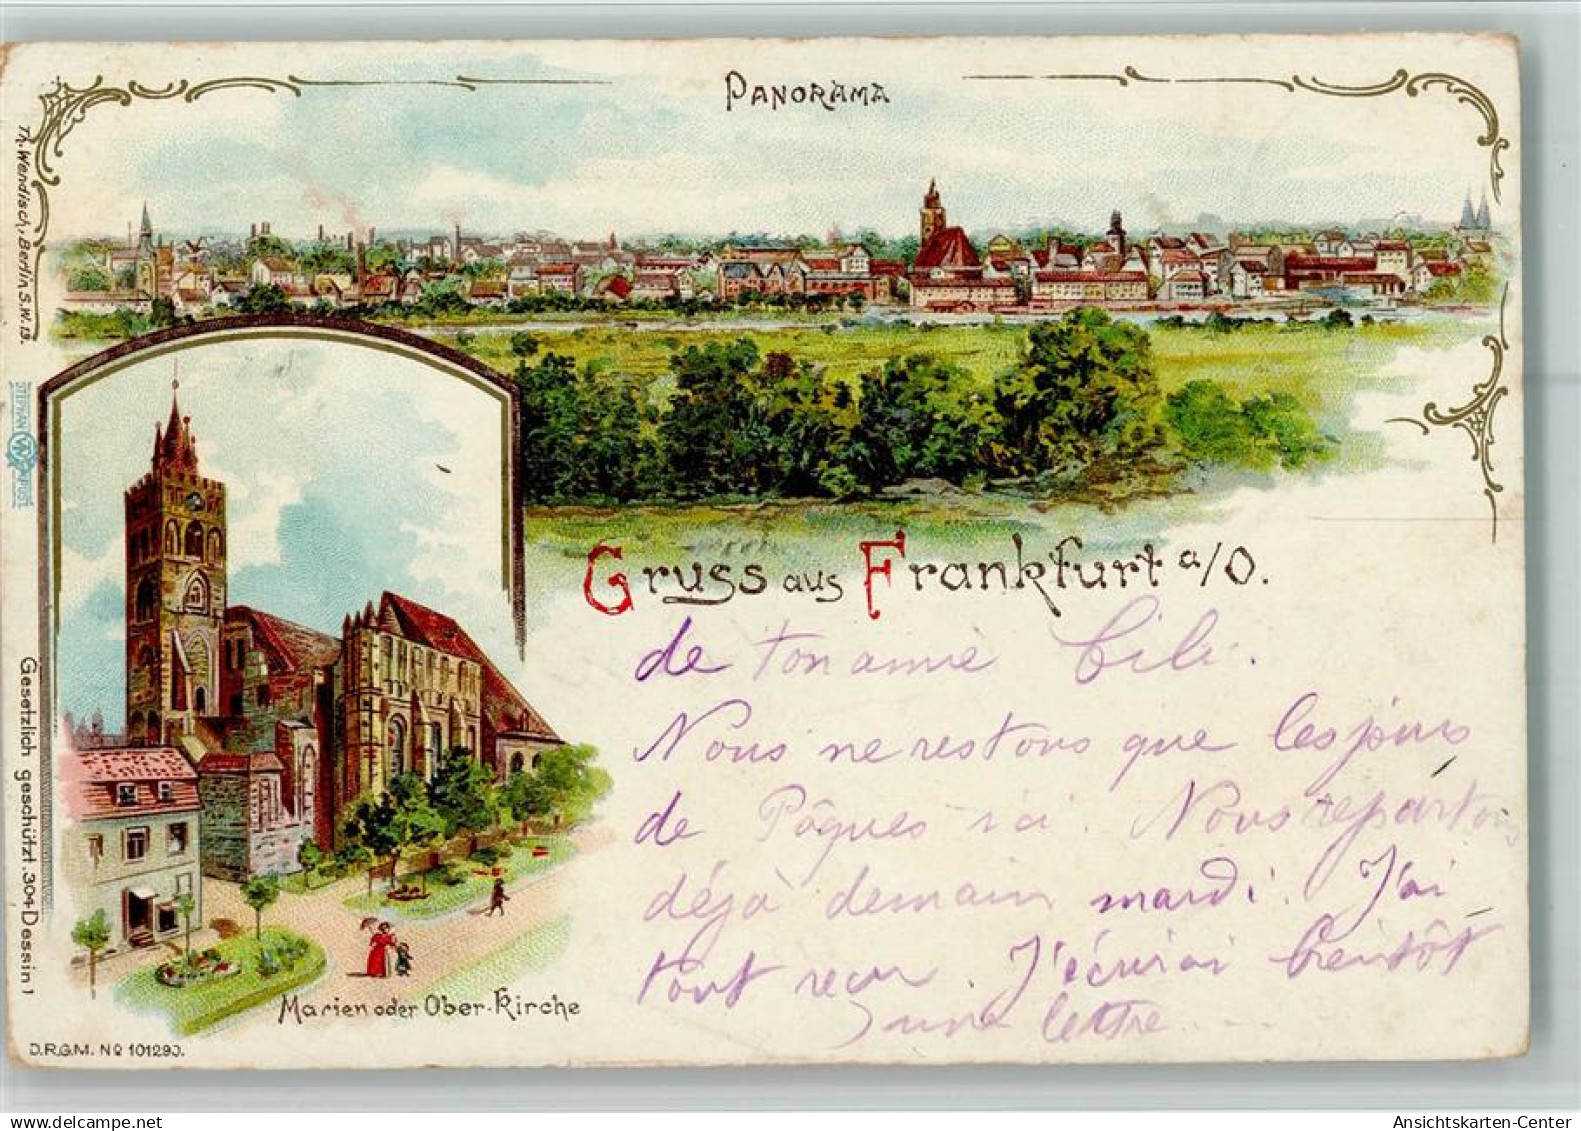 PANORAMA
Th. Wendisch, Berlin S.W. 19.
STEPHAN
Gesetzlich geschützt. 304 Dessin 1
Gruss aus Frankfurt a/O.
de ton amie
Nous ne restons que les jours
de Pâques ici. Nous repartons
déjà demain mardi. J'ai
tout reçu. J'écrirai bientôt
une lettre
Marien oder Ober-Kirche
D.R.G.M. No 101290.
www.delcampe.net
Ansichtskarten-Center